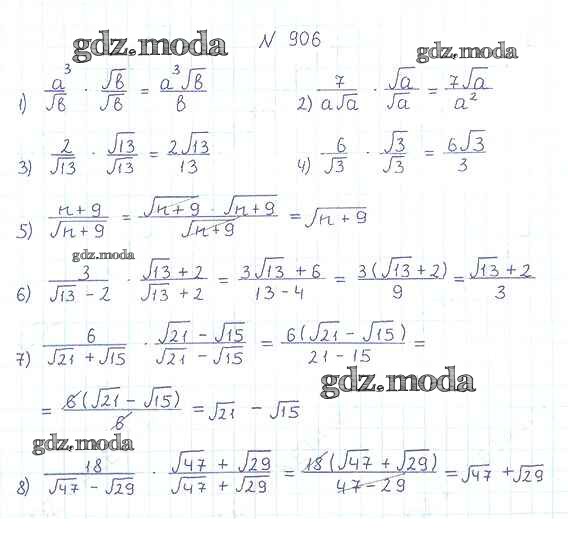 gdz.moda № 906 gdz.moda
1) a³/√b · √b/√b = a³√b/b 2) 7/a√a · √a/√a = 7√a/a²
3) 2/√13 · √13/√13 = 2√13/13 4) 6/√3 · √3/√3 = 6√3/3
5) n+9/√n+9 = √n+9 · √n+9/√n+9 = √n+9
gdz.moda
6) 3/√13 - 2 · √13 + 2/√13 + 2 = 3√13 + 6/13 - 4 = 3(√13 + 2)/9 = √13 + 2/3
7) 6/√21 + √15 · √21 - √15/√21 - √15 = 6(√21 - √15)/21 - 15 =
gdz.moda
= 6(√21 - √15)/6 = √21 - √15
gdz.moda
8) 18/√47 - √29 · √47 + √29/√47 + √29 = 18(√47 + √29)/47 - 29 = √47 + √29